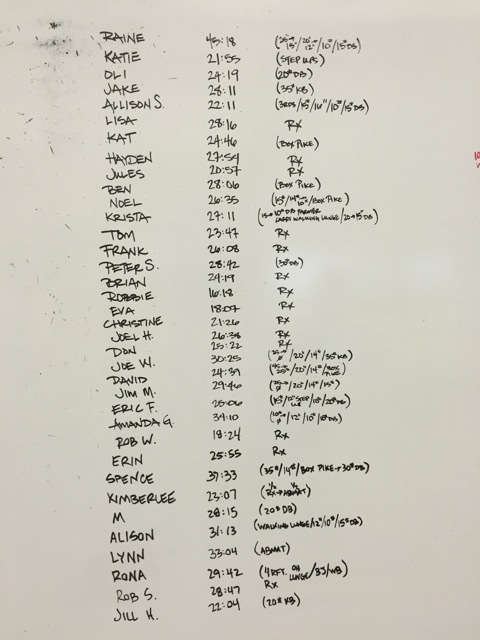 RAINE 45:18 /10#/15#DB)
KATIE 21:55 (STEP UPS)
OLI 24:19 (20# DB)
JAKE 28:11 (35# KB)
ALLISON S. 22:11 (3RDS/15#/16"/10#/15#DB)
LISA 28:16 Rx
KAT 24:46 (BOX PIKE)
HAYDEN 27:54 Rx
JULES 20:57 Rx
BEN 28:06 (BOX PIKE)
NOEL 26:35 (15#/14"/10#/BOX PIKE)
KRISTA 27:11 (15→10# DB FARMER CARRY WALKING LUNGE/20→15#DB)
TOM 23:47 Rx
FRANK 26:08 Rx
PETER S. 28:42 (30#DB)
BRIAN 24:19 Rx
ROBBIE 16:18 Rx
EVA 18:07 Rx
CHRISTINE 21:26 Rx
JOEL H. 26:38 Rx
DON 25:22 Rx
JOE W. 30:25 /20"/14#/35# KB)
DAVID 24:39 /20"/14#/BOX PIKE)
JIM M. 29:46 /20"/14#/15#)
ERIC F. 25:06 (15#/12" STEP UP/10#/20#DB)
AMANDA G. 34:10 /12"/10#/
ROB W. 18:24 Rx
ERIN 25:55 Rx
SPENCE 37:33 (35#/14#/BOX PIKE→30#DB)
KIMBERLEE 23:07 (½ Rx→½ ABMAT)
M 28:15 (20# DB)
ALISON 31:13 (WALKING LUNGE/12"/10#/15#DB)
LYNN 33:04 (ABMAT)
RONA 29:42 (4RFT. OH LUNGE/BJ/WB)
ROB S. 28:47 Rx
JILL H. 22:04 (20# KB)